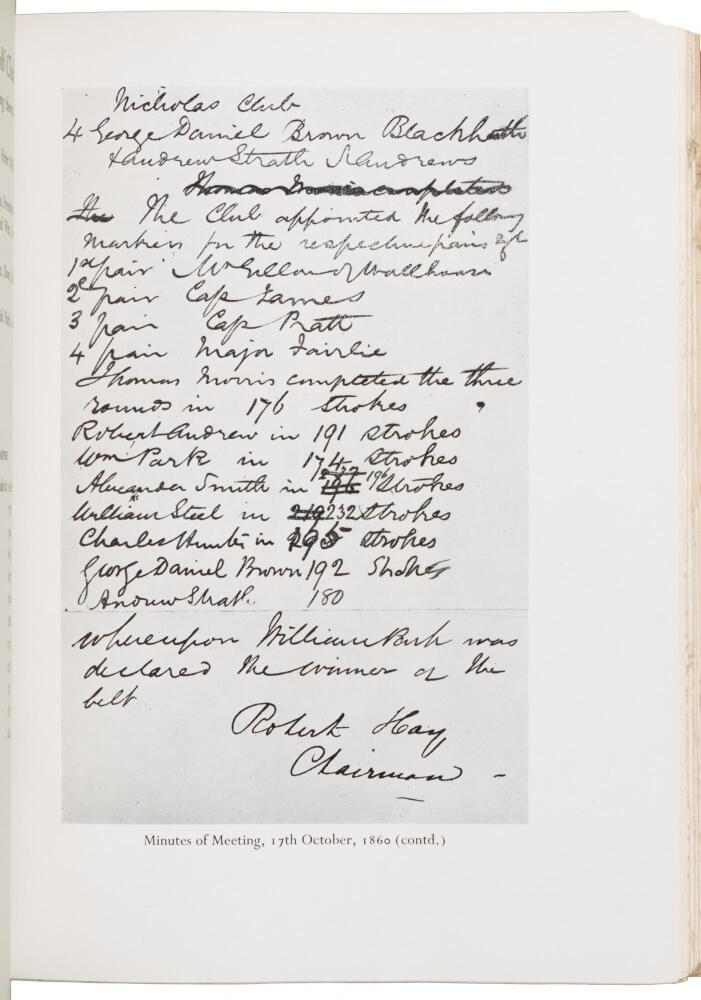 Nicholas Club
4 George Daniel Brown Blackheath
& Andrew Strath St Andrews
Thomas Morris completed
The The Club appointed the following
markers for the respective pairs
1st pair Mr of Wallhouse
2d pair Cap James
3 pair Cap Pratt
4 pair Major Fairlie
Thomas Morris completed the three
rounds in 176 strokes
Robert Andrew in 191 strokes
Wm Park in 174 strokes
Alexander Smith in 196 232 196 strokes
William Steel in 219 232 strokes
Charles Hunter in 195 strokes
George Daniel Brown 192 strokes
Andrew Strath 180
whereupon William Park was
declared the winner of the
belt
Robert Hay
Chairman
Minutes of Meeting, 17th October, 1860 (contd.)